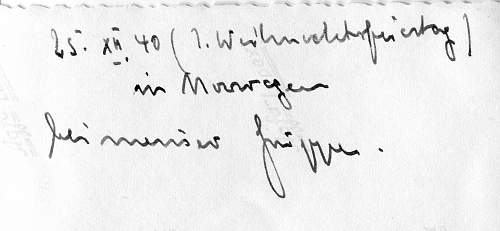 25. XII. 40 (1. Weihnachtsfeiertag)
in Norwegen
bei meiner Gruppe.